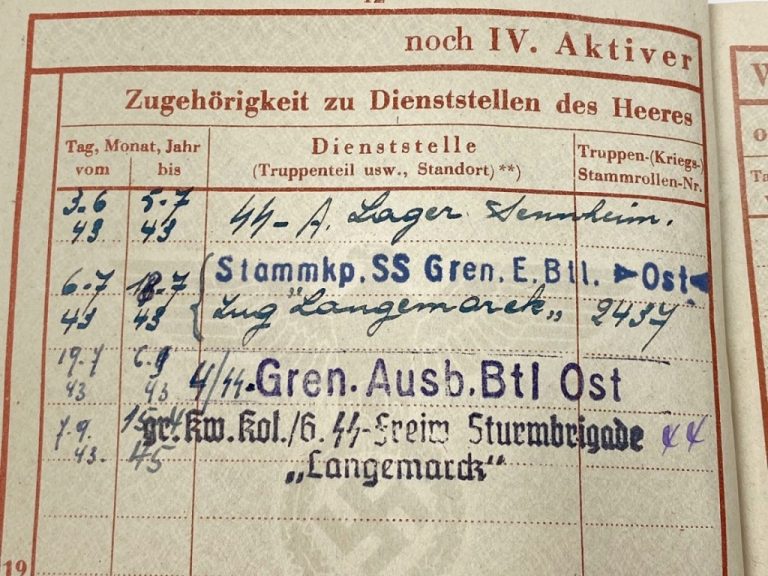 noch IV. Aktiver
Zugehörigkeit zu Dienststellen des Heeres
Tag, Monat, Jahr
vom bis
Dienststelle
(Truppenteil usw., Standort) **)
Truppen-(Kriegs-)
Stammrollen-Nr.
3.6 5.7
43 43
SS-A. Lager Sennheim.
Stammkp. SS Gren. E. Btl. Ost
6.7 18.7
43 43
Zug "Langemarck" 2437
19.7
43 43
4/SS-Gren. Ausb. Btl Ost
7.9. 15.4
43. 45
gr. Kw. Kol./6. SS-Freiw Sturmbrigade
„Langemarck"
19